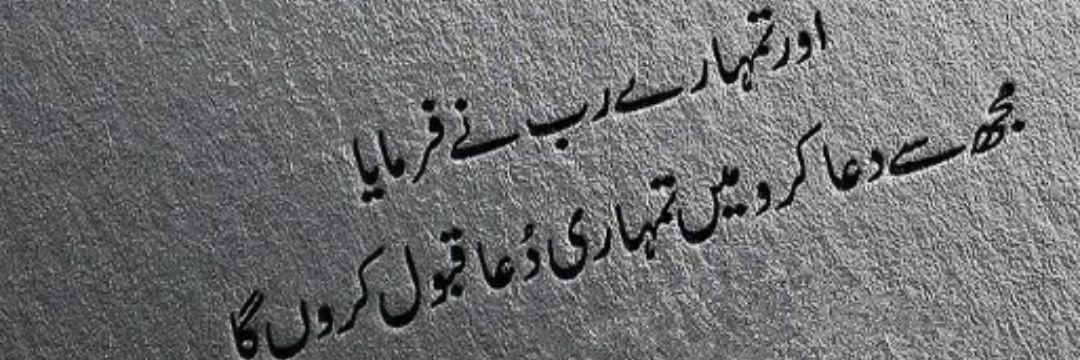 اور تمہارے رب نے فرمایا
مجھ سے دعا کرو میں تمہاری دُعا قبول کروں گا